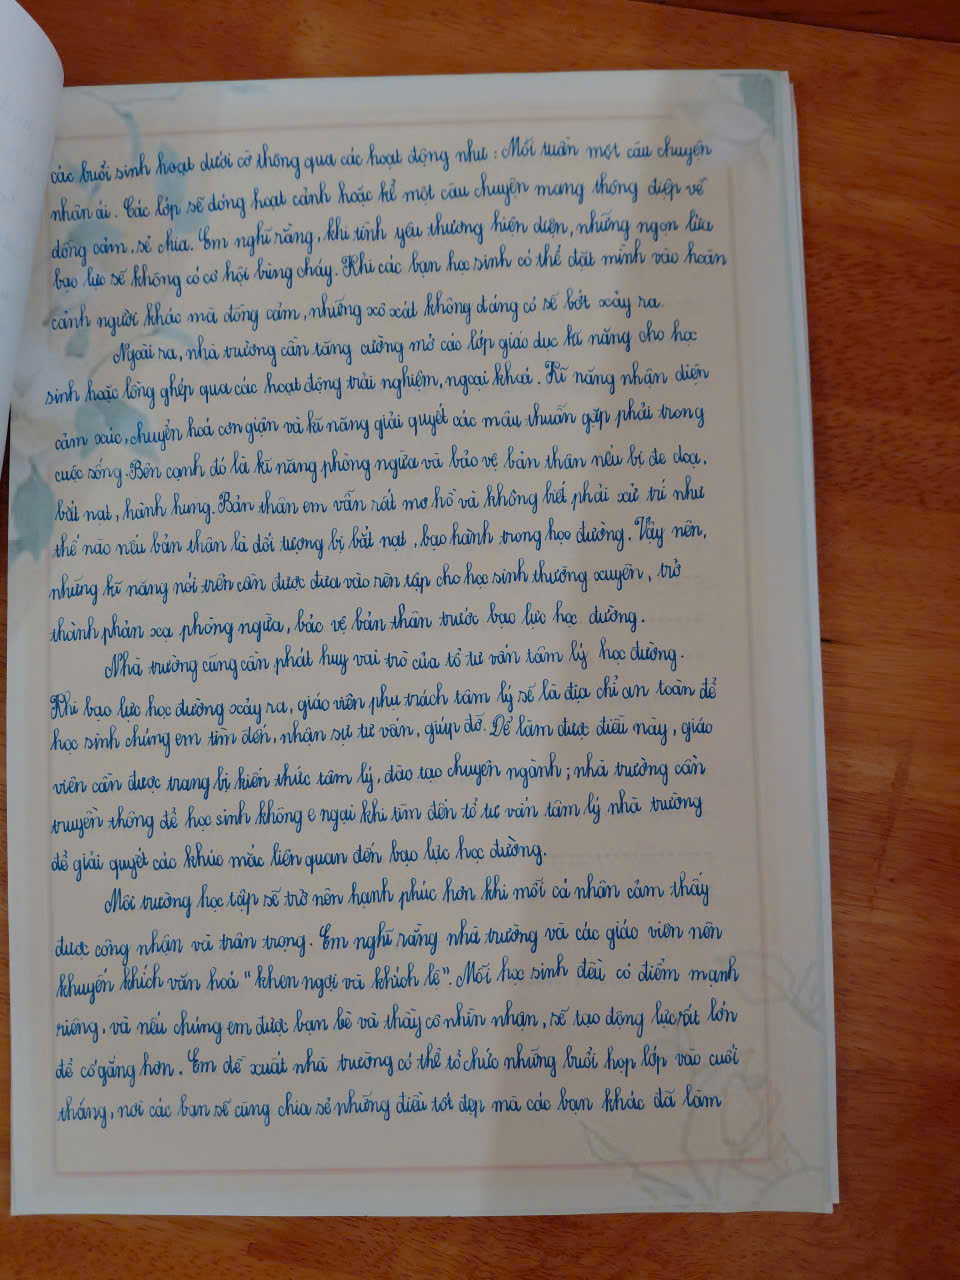 các buổi sinh hoạt dưới cờ thông qua các hoạt động như : Mỗi tuần một câu chuyện
nhân ái. Các lớp sẽ đóng hoạt cảnh hoặc kể một câu chuyện mang thông điệp về
đồng cảm, sẻ chia. Em nghĩ rằng, khi tình yêu thương hiện diện, những ngọn lửa
bạo lực sẽ không có cơ hội bùng cháy. Khi các bạn học sinh có thể đặt mình vào hoàn
cảnh người khác mà đồng cảm, những xô xát không đáng có sẽ bớt xảy ra.
Ngoài ra, nhà trường cần tăng cường mở các lớp giáo dục kĩ năng cho học
sinh hoặc lồng ghép qua các hoạt động trải nghiệm, ngoại khoá. Kĩ năng nhận diện
cảm xúc, chuyển hoá cơn giận và kĩ năng giải quyết các mâu thuẫn gặp phải trong
cuộc sống. Bên cạnh đó là kĩ năng phòng ngừa và bảo vệ bản thân nếu bị đe doạ,
bắt nạt, hành hung. Bản thân em vẫn rất mơ hồ và không biết phải xử trí như
thế nào nếu bản thân là đối tượng bị bắt nạt, bạo hành trong học đường. Vậy nên,
những kĩ năng nói trên cần được đưa vào rèn tập cho học sinh thường xuyên, trở
thành phản xạ phòng ngừa, bảo vệ bản thân trước bạo lực học đường.
Nhà trường cũng cần phát huy vai trò của tổ tư vấn tâm lý học đường.
Khi bạo lực học đường xảy ra, giáo viên phụ trách tâm lý sẽ là địa chỉ an toàn để
học sinh chúng em tìm đến, nhận sự tư vấn, giúp đỡ. Để làm được điều này, giáo
viên cần được trang bị kiến thức tâm lý, đào tạo chuyên ngành; nhà trường cần
truyền thông để học sinh không e ngại khi tìm đến tổ tư vấn tâm lý nhà trường
để giải quyết các khúc mắc liên quan đến bạo lực học đường.
Môi trường học tập sẽ trở nên hạnh phúc hơn khi mỗi cá nhân cảm thấy
được công nhận và trân trọng. Em nghĩ rằng nhà trường và các giáo viên nên
khuyến khích văn hoá "khen ngợi và khích lệ". Mỗi học sinh đều có điểm mạnh
riêng, và nếu chúng em được bạn bè và thầy cô nhìn nhận, sẽ tạo động lực rất lớn
để cố gắng hơn. Em đề xuất nhà trường có thể tổ chức những buổi họp lớp vào cuối
tháng, nơi các bạn sẽ cùng chia sẻ những điều tốt đẹp mà các bạn khác đã làm